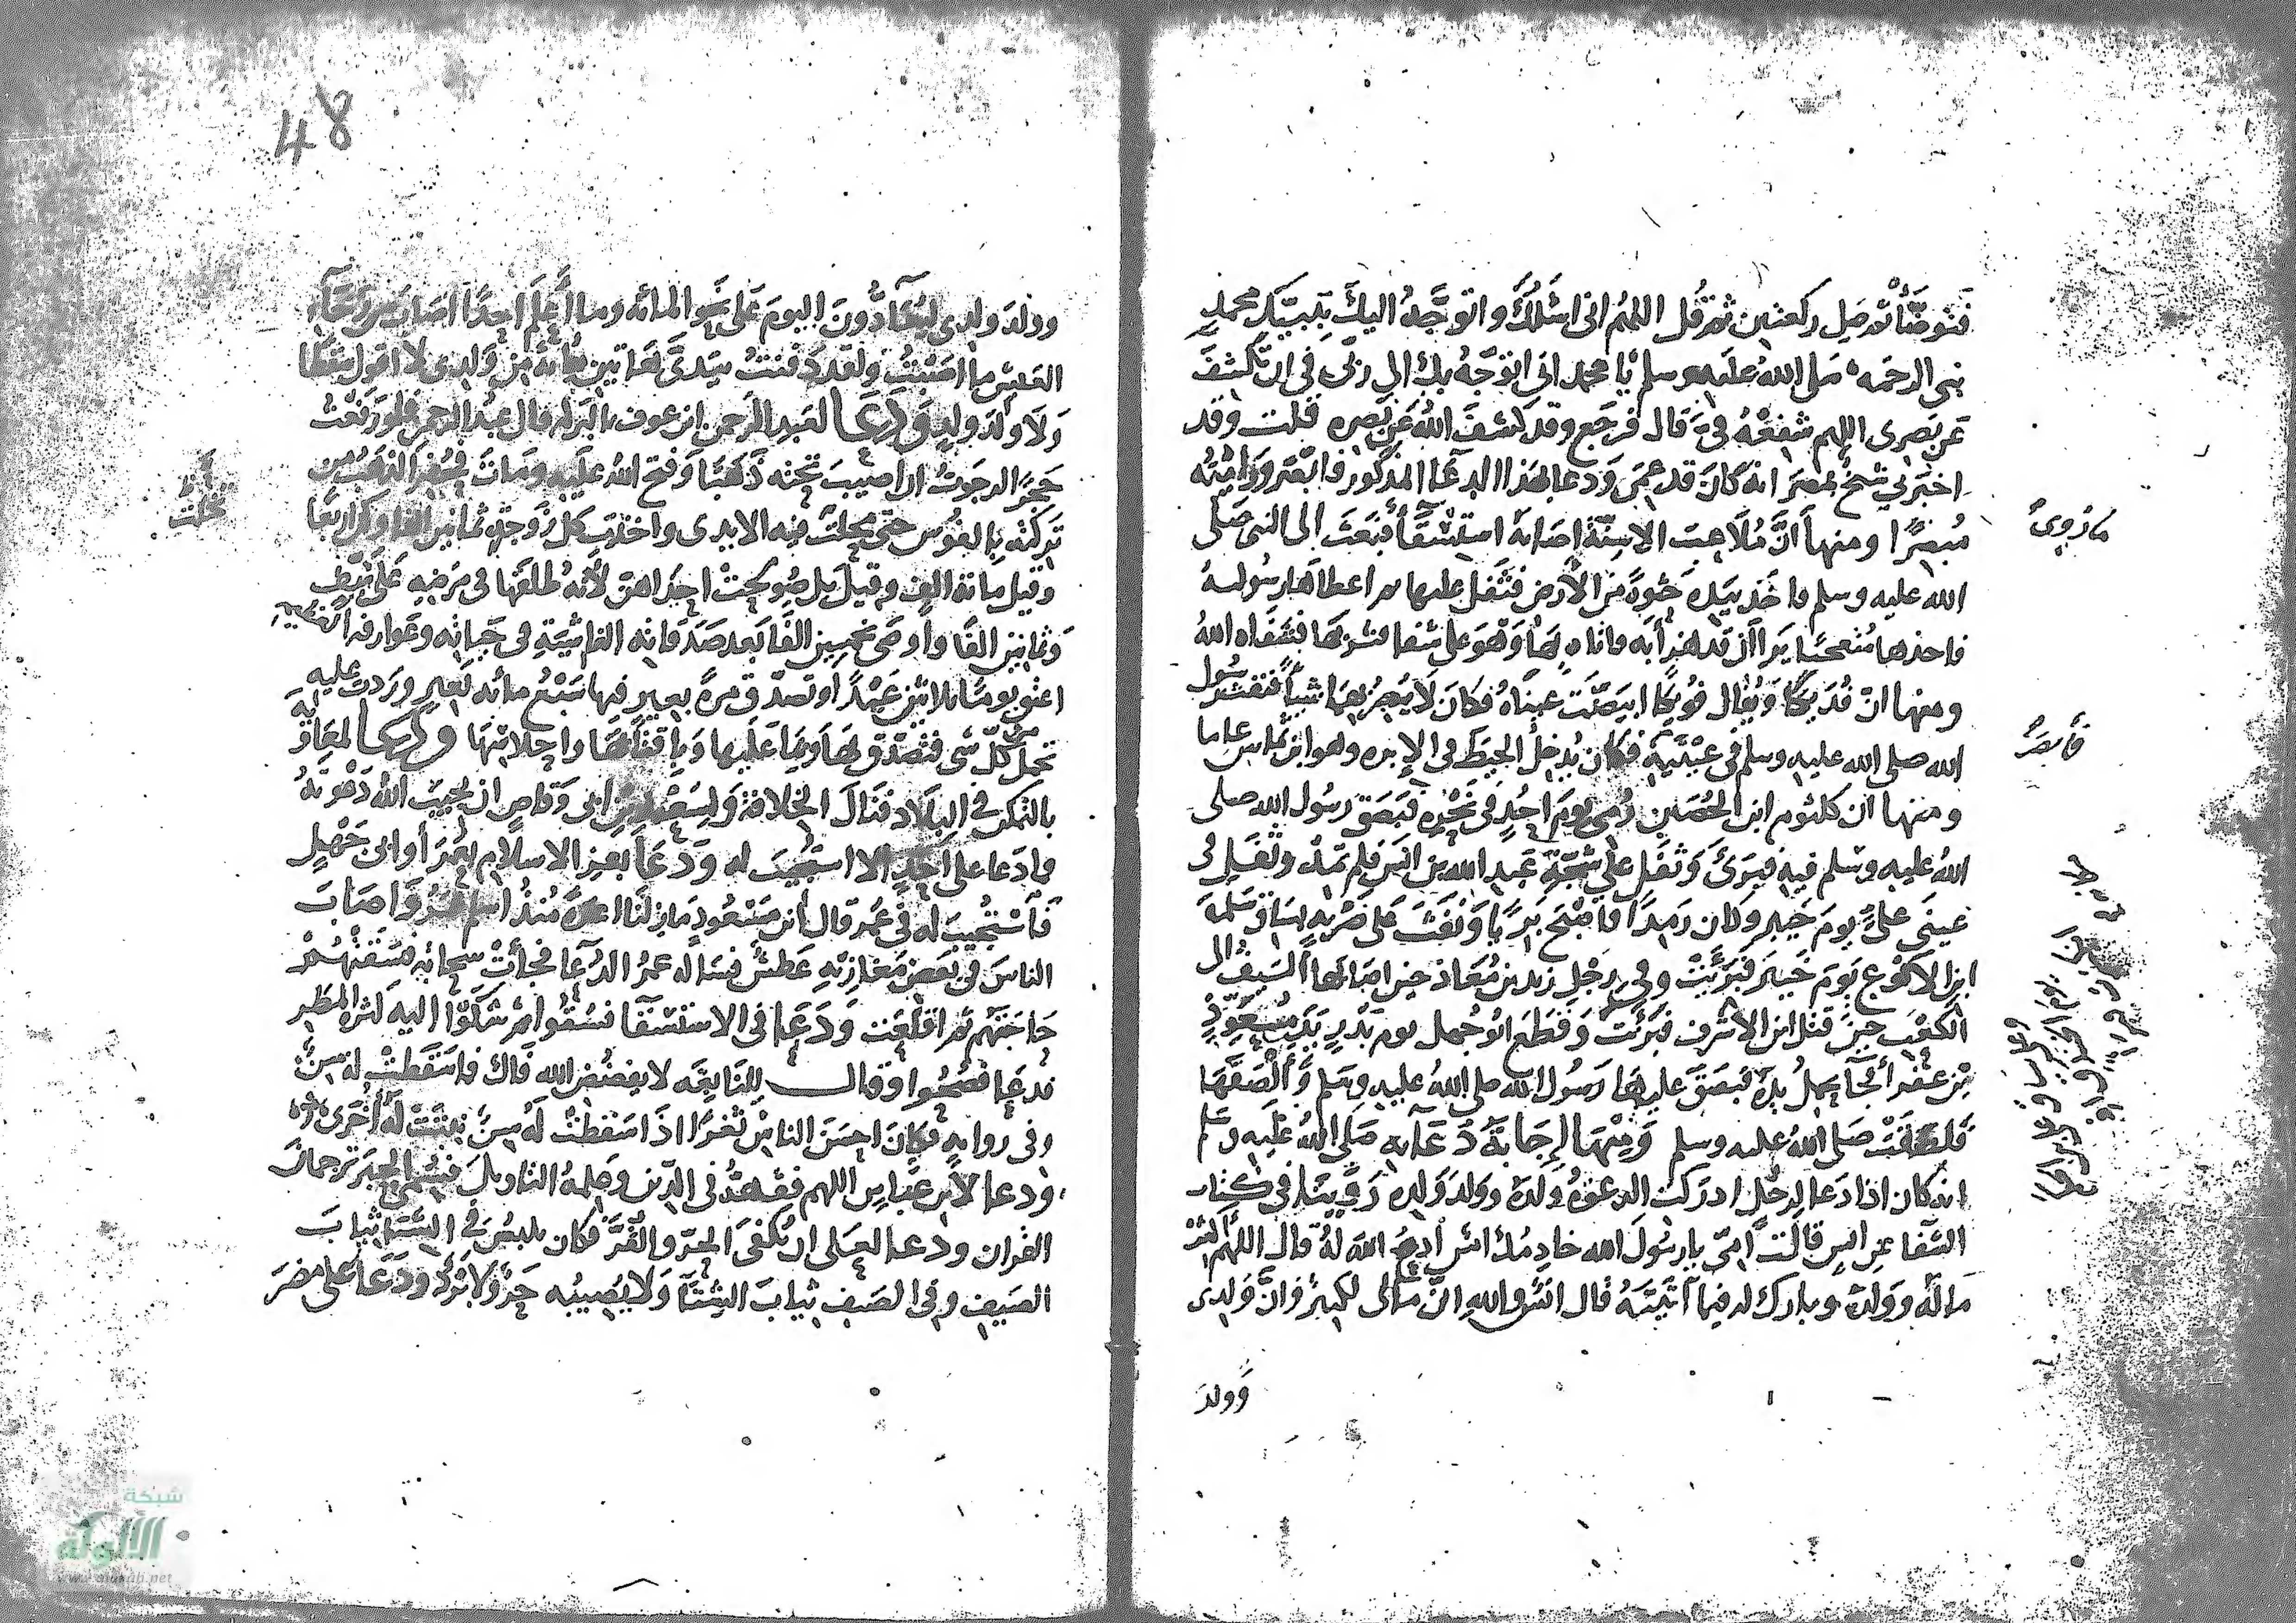 فتوضّأ ثم صلِّ ركعتين ثم قُل اللهُم انى اسْئلُكَ واتوجَّهُ اليكَ بنبيّك محمدٍ
نبى الرحمه صَلى اللهُ عليه وسلم يا محمد انى اتوَجَّهُ بك الى ربّى فى ان تكشفَ
عن بَصرى اللهم شفعْهُ فىَّ قال فرجَع وقد كشفَ اللهُ عن بَصره قلت وقد
اخبرنى شيخٌ بمصرَ انه كانَ قد عمىَ ودعا بهذا الدعَا المذكور فابصَر ورَايتُه
مُبصرًا ومنها انَّ مُلاعبَ الاسِنّة اصَابَهُ استسْقَاٌ فبَعَثَ الى النبى صَلى
الله عليه وسلم فاخَذ بيَدِه حَثوَةً مِنَ الأرض فتَفَل عليها ثم اعطاهَا رسُولهُ
فاخذها مُتعجّبًا يَرا ان قد هُزأ به فاتاه بهَا وَهْوَ على شفا فشربهَا فشفاه اللهُ
ومنها انّ فُدَيكًا ويُقال فوُيكًا ابيَضّت عينَاهُ فكان لاَ يُبصرُ بهما شيأً فنفَثَ رسُول
الله صلى الله عليه وسلم فى عيْنَيه فكان يُدخِلُ الخيطَ فى الإبره وهو ابن ثمانين عاما
ومنها ان كلثوم ابن الحُصَين رُمى يومَ اُحُدٍ فى نَحْرِه فبَصَق رسُول الله صلى
اللهُ عليه وسلم فيه فبَرىَ وَتَفَل على شجّةِ عَبدِ الله بن انيس فلم تمدّ وتفَل فى
عينَى علىٍّ يومَ خيبر وكان رَمِدًا فاصْبَح بَريًا وَنَفَثَ عَلى ضَربةٍ بسَاق سَلمةَ
ابن الاكوَع يَومَ خَيبرَ فبَرئَتْ وفى رجْلِ زيد بن مُعَاذ حين اصَابَها السّيفُ الى
الكعْب حِينَ قتل ابن الاشرف فبَرئَت وَقطَع ابُو جُهل يوم بَدْرٍ يَدَ مُعَوِّذِ
بْنِ عَفْرا فجآ يحملُ يدَهُ فبَصَقَ عليهَا رَسُول الله صلى اللهُ عليه وسَلم وَألْصَقَهَا
فلصَقَتْ صَلى اللهُ عليه وسلم وَمِنْهَا إِجَابَةُ دُعَآيه صَلى اللهُ عَلَيه وسَلم
انه كان اذا دَعا لرجُلٍ ادرَكت الدعوَةُ ولدَهُ وولدَ وَلدِه رَوينا فى كتاب
الشفا عن انسٍ قالت امّى يا رسُولَ الله خادِمُكَ انس ادعُ اللهَ لهُ قال اللهُم اكثر
مالَهُ وَولدَهُ وبارك له فيما آتيتَهُ قال انسٌ والله انّ مَالى لكثيرٌ وَانَّ وَلدِى
وَولدَ
ما رُوِىَ
فأبصَرَ
48
وولدَ ولدى ليُعَآدُّونَ اليومَ عَلى نحو المائه وما أَعْلم احَدًا اصَابَ من رَخآءِ
العَيش ما اصَبْتُ ولقد دَفنتُ بيَدىَّ هَاتين مِائةً مِن وَلدِى لا اقول سَقطا
وَلاَ وَلَدَ وَلدٍ وَدَعَا لعَبدِ الرَحمن ابن عوف بالبَركه قال عبدُ الرحمن فلو رَفعْتُ
حَجَرًا لرجَوتُ ان اصيبَ تحته ذَهَبًا وَفتح اللهُ عليه ومَاتَ فحُفِرَ الذهَبُ من
تَرِكَتِه بالفؤس حتى مجلت فيه الايدى واخذَت كل زوجةٍ ثمانين الفا وكنّ اربعًا
وقيل مِائة الف وقيلَ بل صُولحتْ احدَاهنّ لأنهُ طلقَها فى مَرَضِهِ عَلى نيّفٍ
وَثمانين الفًا وأوصَى بخمسين الفًا بَعد صَدقاتِه الفاشيَةِ فى حَيَاتِه وعَوارفه العظيمه
اعتق يومًا ثلاثين عَبْدًا وتصدّق مرةً بعيرٍ فيها سَبْعُ مائه بَعيرٍ وردت عليه
تحمل من كلّ شى فتصَدّق بهَا وبمَا عَليها وَباقتَابهَا واحلاسِهَا وَدَعَا لمعَاوية
بالتمكن فى البلاَد فنَالَ الخلافة وَلِسَعْد بن ابى وَقاص ان يُجيبَ اللهُ دَعْوتَهُ
فما دَعا على احَدٍ الا استُجيبَ له وَدَعَا بعز الاسلام بعُمَرَ أو ابى جَهْلٍ
فَاسْتُجيبَ له فى عُمر قال ابن مسْعُودٍ مَا زلْنَا اعزّةً مُنذُ اسْلم عُمَرُ وَاصَابَ
الناسَ فى بَعض مَغازيهِ عَطشٌ فسَاله عمرُ الدُعَا فدعا فجاَتْ سحَابَه فسَقَتْهُمْ
حَاجَتهُم ثم اقلَعَت وَدَعَا فى الاستسْقَا فسُقُوا ثمّ شكَوْا اليه كثره المطَر
فدعَا فصُحُوا وقال للنّابغَه لا يفضُض الله فاك فما سَقَطتْ له سِنٌّ
وفى روايةٍ فكانَ احسَنَ الناسْ ثغرًا اذَا سَقطتْ لَهُ سِنٌ نبَتَتْ لَهُ اُخرَى
ودعا لاَبن عَبّاسٍ اللهم فقهْهُ فى الدّين وعلمْهُ التاويلَ فسُمى الحِبرَ وترجمانَ
القران ودعا لعَلى ان يُكْفَى الحرّ والقُرَّ فكان يلبسُ فى الشّتا ثيابَ
الصَيف وفى الصَيف ثيابَ الشِتآ وَلا يُصِيبُه حَرٌ وَلا بَرْدٌ ودَعَا على مُضَرَ
مجلت
شبكة
الألوكة
www.alukah.net